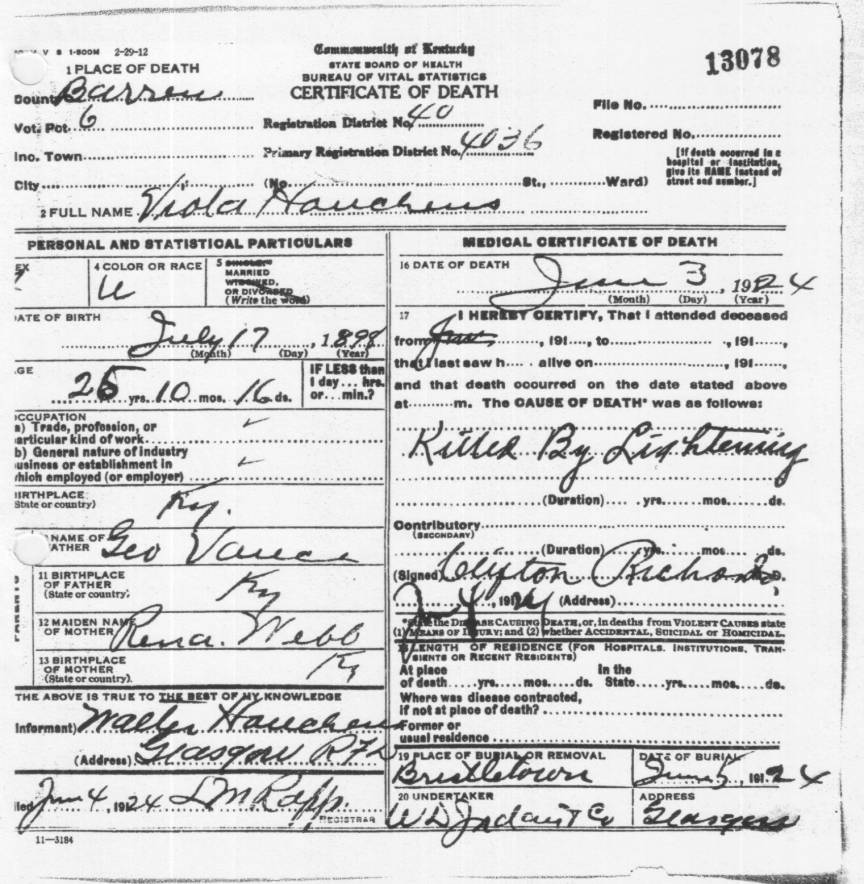 V S 1-500M 2-29-12
Commonwealth of Kentucky
STATE BOARD OF HEALTH
BUREAU OF VITAL STATISTICS
CERTIFICATE OF DEATH
13078
1 PLACE OF DEATH
County Barren
Vot. Pct. 6
Inc. Town
City (No. St., Ward)
Registration District No. 40
Primary Registration District No. 4036
File No.
Registered No.
[If death occurred in a hospital or institution, give its NAME instead of street and number.]
2 FULL NAME Viola Houchens
PERSONAL AND STATISTICAL PARTICULARS
4 COLOR OR RACE
5 SINGLE
MARRIED
WIDOWED,
OR DIVORCED
(Write the word)
DATE OF BIRTH
July 17, 1898
(Month) (Day) (Year)
AGE
25 yrs. 10 mos. 16 ds.
IF LESS than
1 day... hrs.
or... min.?
OCCUPATION
a) Trade, profession, or
particular kind of work
b) General nature of industry
business or establishment in
which employed (or employer)
BIRTHPLACE
(State or country) Ky.
NAME OF
FATHER Geo Vance
11 BIRTHPLACE
OF FATHER
(State or country) Ky
12 MAIDEN NAME
OF MOTHER Rena. Webb
13 BIRTHPLACE
OF MOTHER
(State or country). Ky
PARENTS
THE ABOVE IS TRUE TO THE BEST OF MY KNOWLEDGE
Informant) Walter Houchens
(Address) Glasgow RFD
Filed June 4, 1924 L M Rapp.
REGISTRAR
11—3184
MEDICAL CERTIFICATE OF DEATH
16 DATE OF DEATH
June 3, 1924
(Month) (Day) (Year)
17 I HEREBY CERTIFY, That I attended deceased
from , 191 , to , 191 ,
that I last saw h alive on , 191 ,
and that death occurred on the date stated above
at m. The CAUSE OF DEATH* was as follows:
Killed By Lightening
(Duration) yrs. mos. ds.
Contributory
(SECONDARY)
(Duration) yrs. mos. ds.
(Signed) Clifton Richards M.D.
6-4, 1924 (Address)
*State the DISEASE CAUSING DEATH, or, in deaths from VIOLENT CAUSES state
(1) MEANS OF INJURY; and (2) whether ACCIDENTAL, SUICIDAL or HOMICIDAL.
18 LENGTH OF RESIDENCE (FOR HOSPITALS, INSTITUTIONS, TRAN-
SIENTS OR RECENT RESIDENTS)
At place In the
of death yrs. mos. ds. State yrs. mos. ds.
Where was disease contracted,
if not at place of death?
Former or
usual residence
19 PLACE OF BURIAL OR REMOVAL
Bristletown
DATE OF BURIAL
June 5, 1924
20 UNDERTAKER
ADDRESS
Glasgow